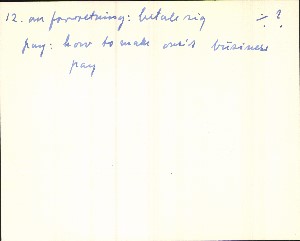 12. om forretning: betale sig ÷ ?
pay: how to make one's business
pay